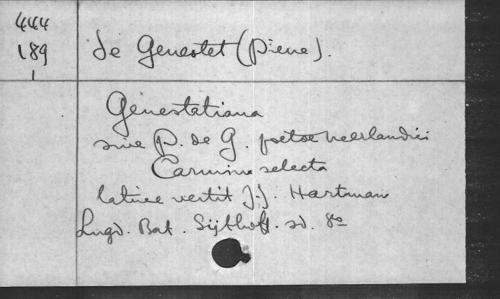 444
189
1
de Genestet (Pierre).
Génestatiana
sive P. de G. poetae neerlandici
Carmina selecta
latine vertit J.J. Hartman
Lugd. Bat. Sijthoff. sd. 8o